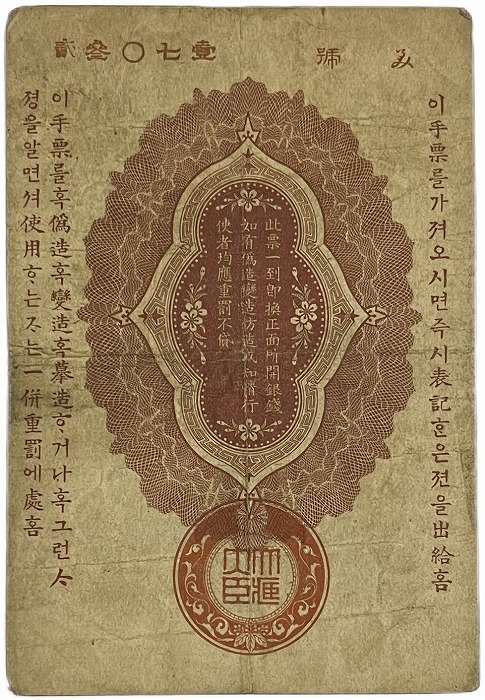 號 壹七〇叁貳
이手票를가져오시면즉시表記ᄒᆞᆫ은젼을出給홈
此票一到卽換正面所開銀錢
如有僞造變造仿造或知情行
使者均應重罰不貸
이手票를혹僞造혹變造혹摹造ᄒᆞ거나혹그런ᄉᆞ
졍을알면셔使用ᄒᆞ는ᄌᆞ는一併重罰에處홈
大藏
大臣